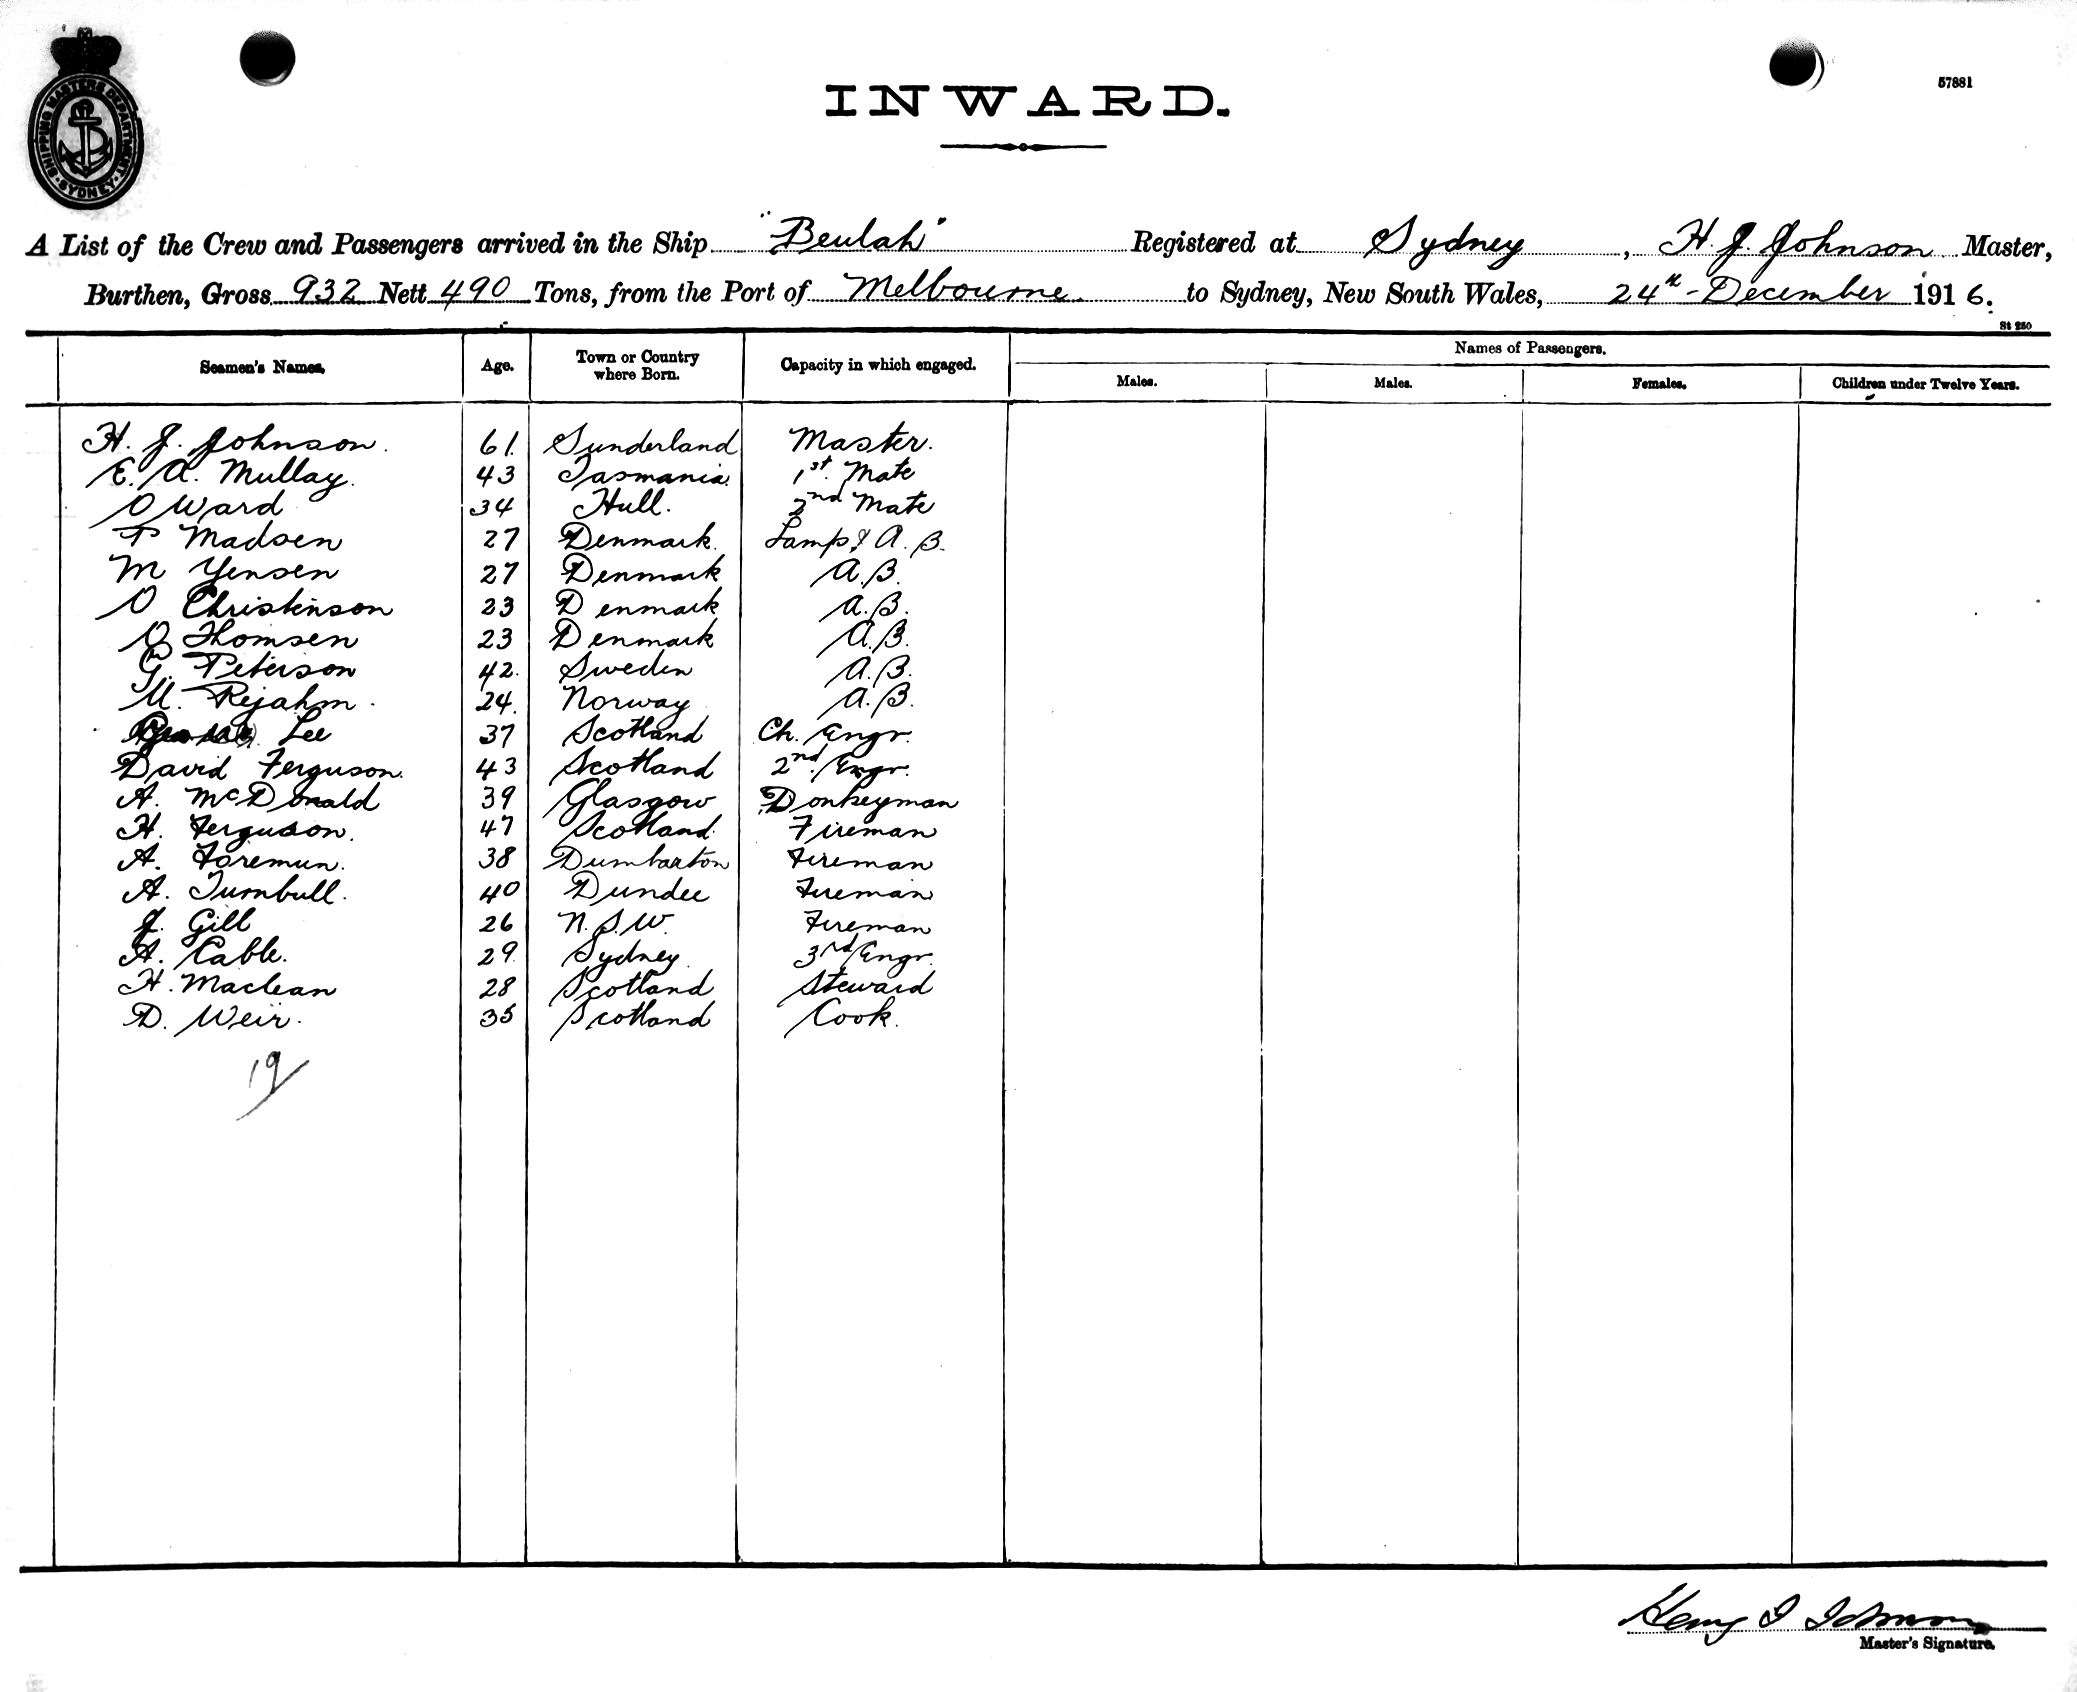 SHIPPING MASTERS DEPARTMENT SYDNEY
57881
INWARD.
A List of the Crew and Passengers arrived in the Ship "Beulah" Registered at Sydney, H. J. Johnson Master,
Burthen, Gross 932 Nett 490 Tons, from the Port of Melbourne to Sydney, New South Wales, 24th - December 1916.
St 250
Seamen's Names. Age. Town or Country where Born. Capacity in which engaged. Names of Passengers.
Males. Males. Females. Children under Twelve Years.
H. J. Johnson. 61. Sunderland Master.
E. A. Mullay. 43 Tasmania. 1st. Mate
O Ward 34 Hull. 2nd Mate
P Madsen 27 Denmark. Lamps & A. B.
M Yensen 27 Denmark A.B.
O Christinson 23 Denmark A.B.
O Thomsen 23 Denmark A.B.
G. Peterson 42. Sweden A.B.
M. Rejahm. 24. Norway A.B.
Lee 37 Scotland Ch. Engr.
David Ferguson. 43 Scotland 2nd. Engr.
A. McDonald 39 Glasgow Donkeyman
H. Ferguson. 47 Scotland Fireman
A. Foremun. 38 Dumbarton Fireman
A. Turnbull. 40 Dundee Fireman
J. Gill 26 N.S.W. Fireman
A. Cable. 29. Sydney. 3rd Engr.
H. Maclean 28 Scotland Steward
D. Weir. 35 Scotland Cook.
19
Henry J Johnson
Master's Signature.